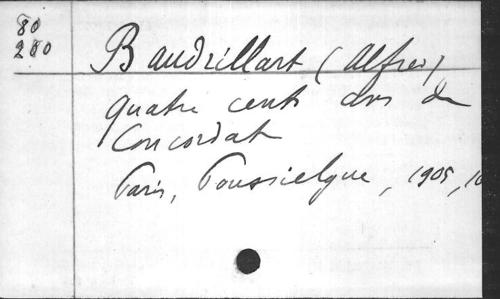 80
280
Baudrillart (Alfred)
Quatre cents ans de
Concordat
Paris, Poussielgue, 1905,